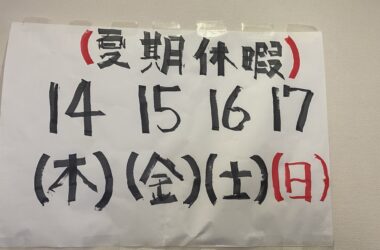 (夏期休暇)
14 15 16 17
(木)(金)(土)(日)